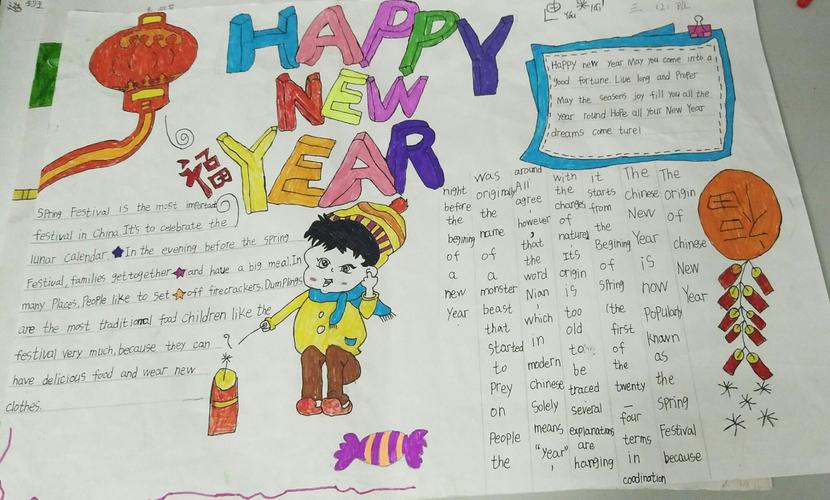 HAPPY
NEW
YEAR
福
Happy new year May you come into a
good fortune. Live long and Proper
May the seasons joy fill you all the
year round. Hope all your New Year
dreams come ture!
Spring Festival is the most important
festival in China. It's to celebrate the
lunar calendar. In the evening before the spring
Festival, families get together and have a big meal. In
many Places, People like to Set off firecrackers. Dumplings
are the most traditional food Children like the
festival very much, because they can
have delicious food and wear new
clothes.
The origin of chinese New Year
The Chinese New Year iS now Popularly known as the spring Festival because
it starts from the Begining of spring (the first of the twenty – four terms in coodination
with the changes of nature) Its origin is too old to be traced several explanations are hanging
around All agree, however, that the word Nian which in modern Chinese Solely means "year",
was originally the name of a monster beast that started to Prey on People the
night before the begining of a new Year.